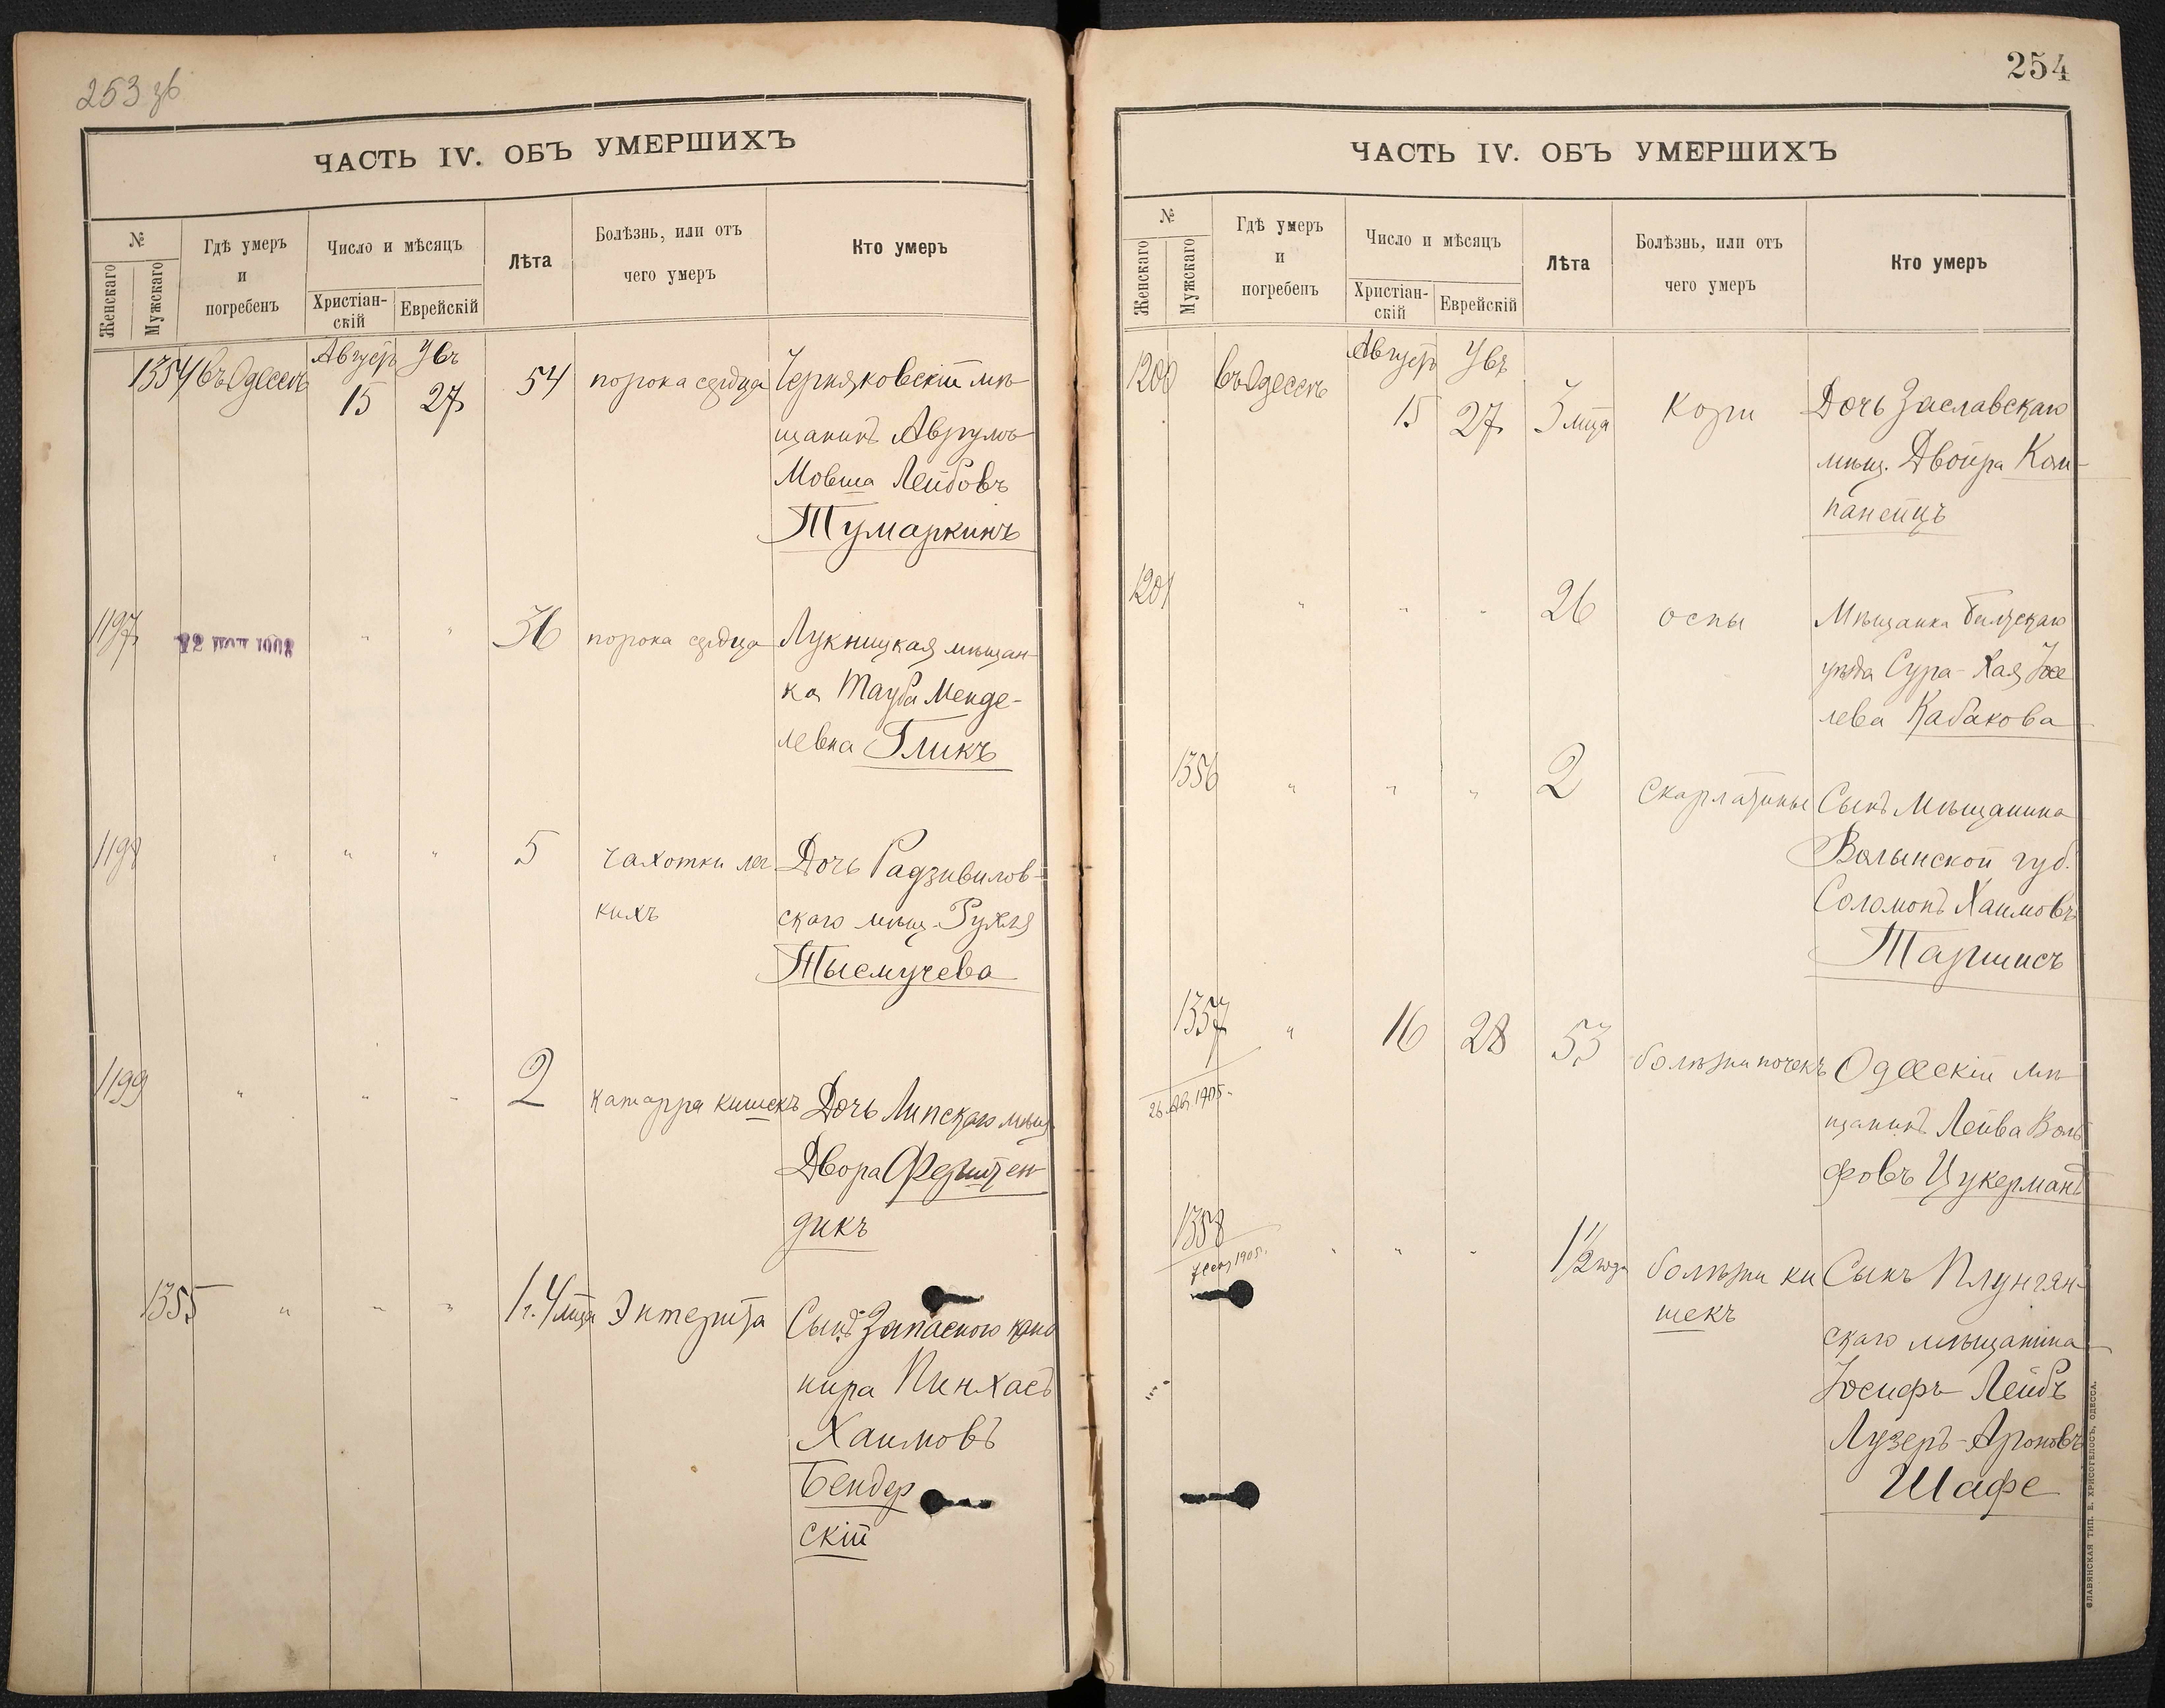 253 зв
ЧАСТЬ IV. ОБЪ УМЕРШИХЪ
№
Женскаго
Мужскаго
Гдѣ умеръ
и
погребенъ
Число и мѣсяцъ
Христіан-
скій
Еврейскій
Лѣта
Болѣзнь, или отъ
чего умеръ
Кто умеръ
Августъ
1354 въ Одессѣ 15 27 54 порока сердца Черняковскій мѣ-
щанинъ Аврумъ
Мовша Лейбовъ
Тумаркинъ
1197 " " 36 порока сердца Лукницкая мѣщан-
ка Тауба Менде-
левна Гликъ
1198 " " " 5 чахотки лег Дочь Радзивилов-
кихъ скаго мѣщ. Рухля
Тысмучева
1199 " " " 2 катарра кишекъ Дочь Липскаго мѣщ
Двора Ферштен-
дикъ
1355 " " " 1 г. 4 мца Энтерита Сынъ Запасного кано
нира Пинхасъ
Хаимовъ
Бендер
скій
254
ЧАСТЬ IV. ОБЪ УМЕРШИХЪ
№
Женскаго
Мужскаго
Гдѣ умеръ
и
погребенъ
Число и мѣсяцъ
Христіан-
скій
Еврейскій
Лѣта
Болѣзнь, или отъ
чего умеръ
Кто умеръ
Августъ
1200 въ Одессѣ 15 27 3 мца Кори Дочь Заславскаго
мѣщ. Двойра Ком-
панеецъ
1201 " " " 26 оспы Мѣщанка
уѣзда Сура-Хая
лева Кабакова
1356 " " " 2 Скарлатины Сынъ Мѣщанина
Волынской губ.
Соломонъ Хаимовъ
Таршисъ
1357 " 16 28 53 болѣзни почекъ Одесскій мѣ
26 Авг 1905. щанинъ Лейба Воль
фовъ Цукерманъ
1358 " " " 1 1/2 года болѣзни ки Сынъ Плунгян-
1905. шекъ скаго мѣщанина
Іосифъ Лейбъ
Лузеръ-Ароновъ
Шафе
СЛАВЯНСКАЯ ТИП. Е. ХРИСОГЕЛОСЪ, ОДЕССА.